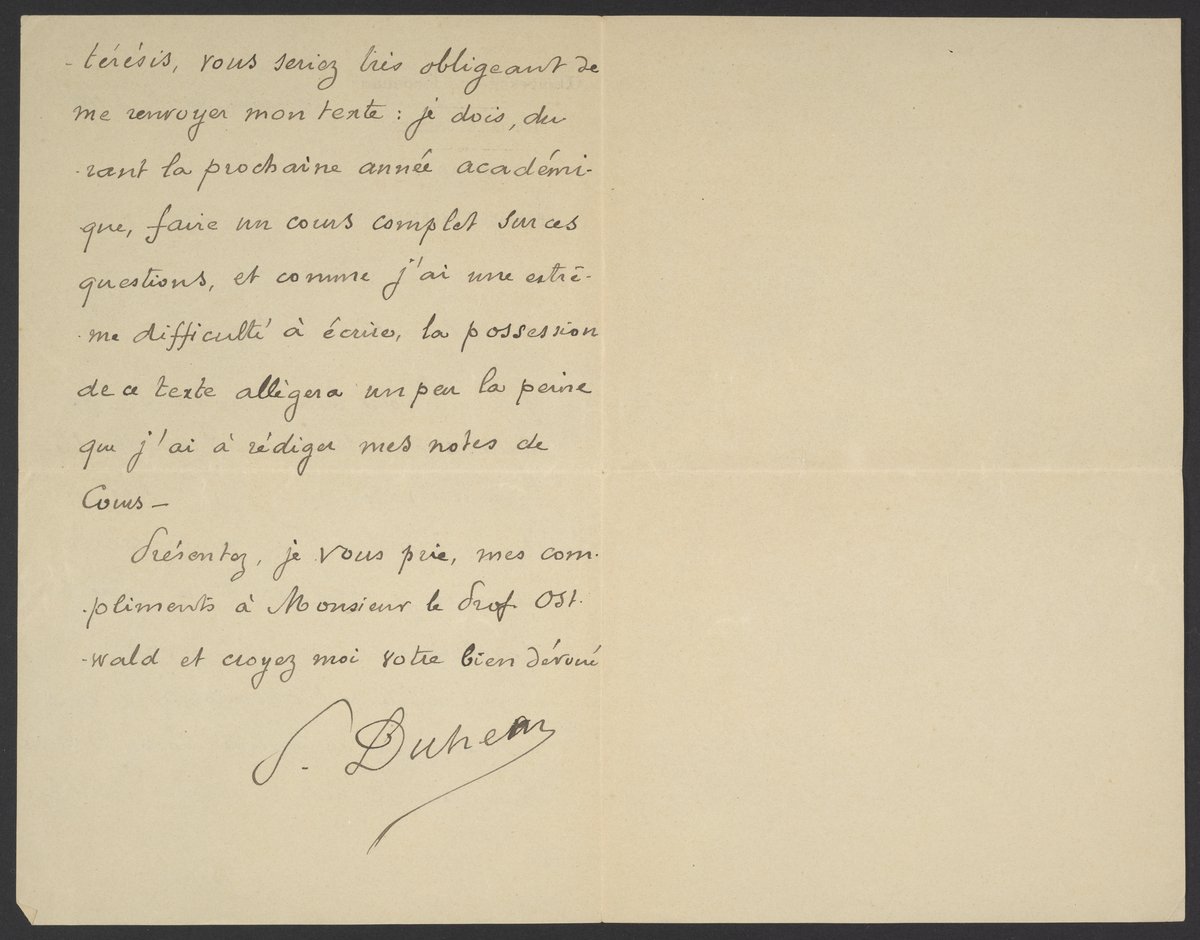 -térésis, vous seriez très obligeant de
me renvoyer mon texte : je dois, du
-rant la prochaine année académi-
que, faire un cours complet sur ces
questions, et comme j'ai une extrê-
-me difficulté à écrire, la possession
de ce texte allègera un peu la peine
que j'ai à rédiger mes notes de
Cours —
Présentez, je vous prie, mes com-
-pliments à Monsieur le Prof. Ost-
-wald et croyez moi votre bien dévoué
P. Duhem